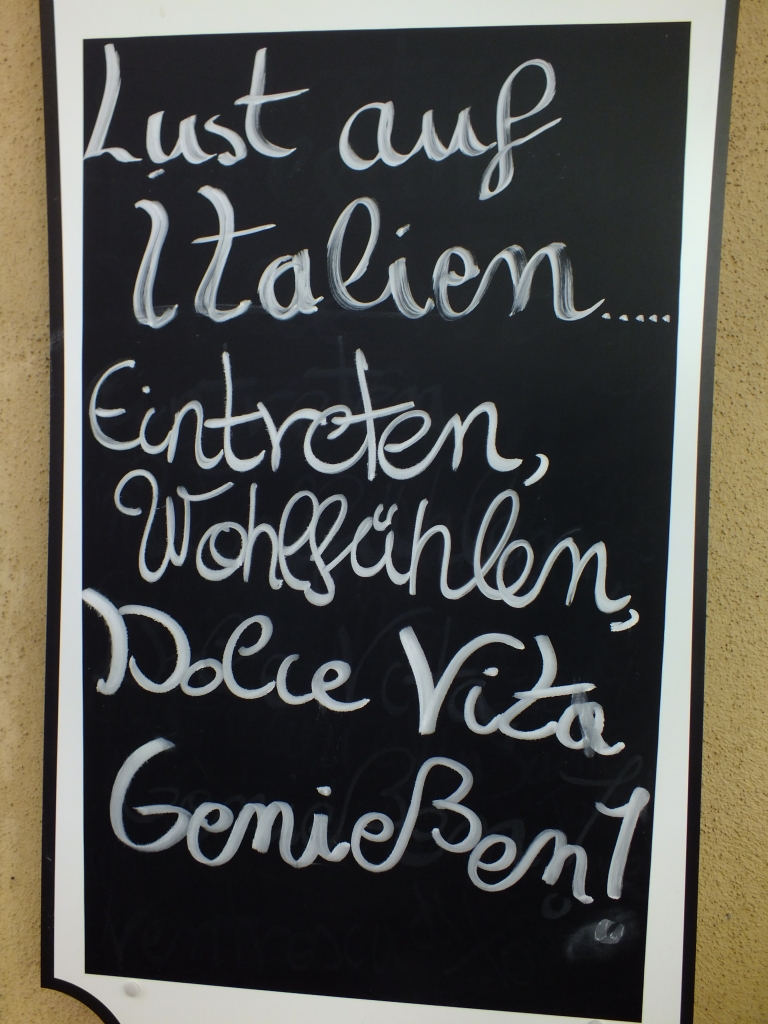 Lust auf
Italien.....
Eintreten,
Wohlfühlen,
Dolce Vita
Genießen!